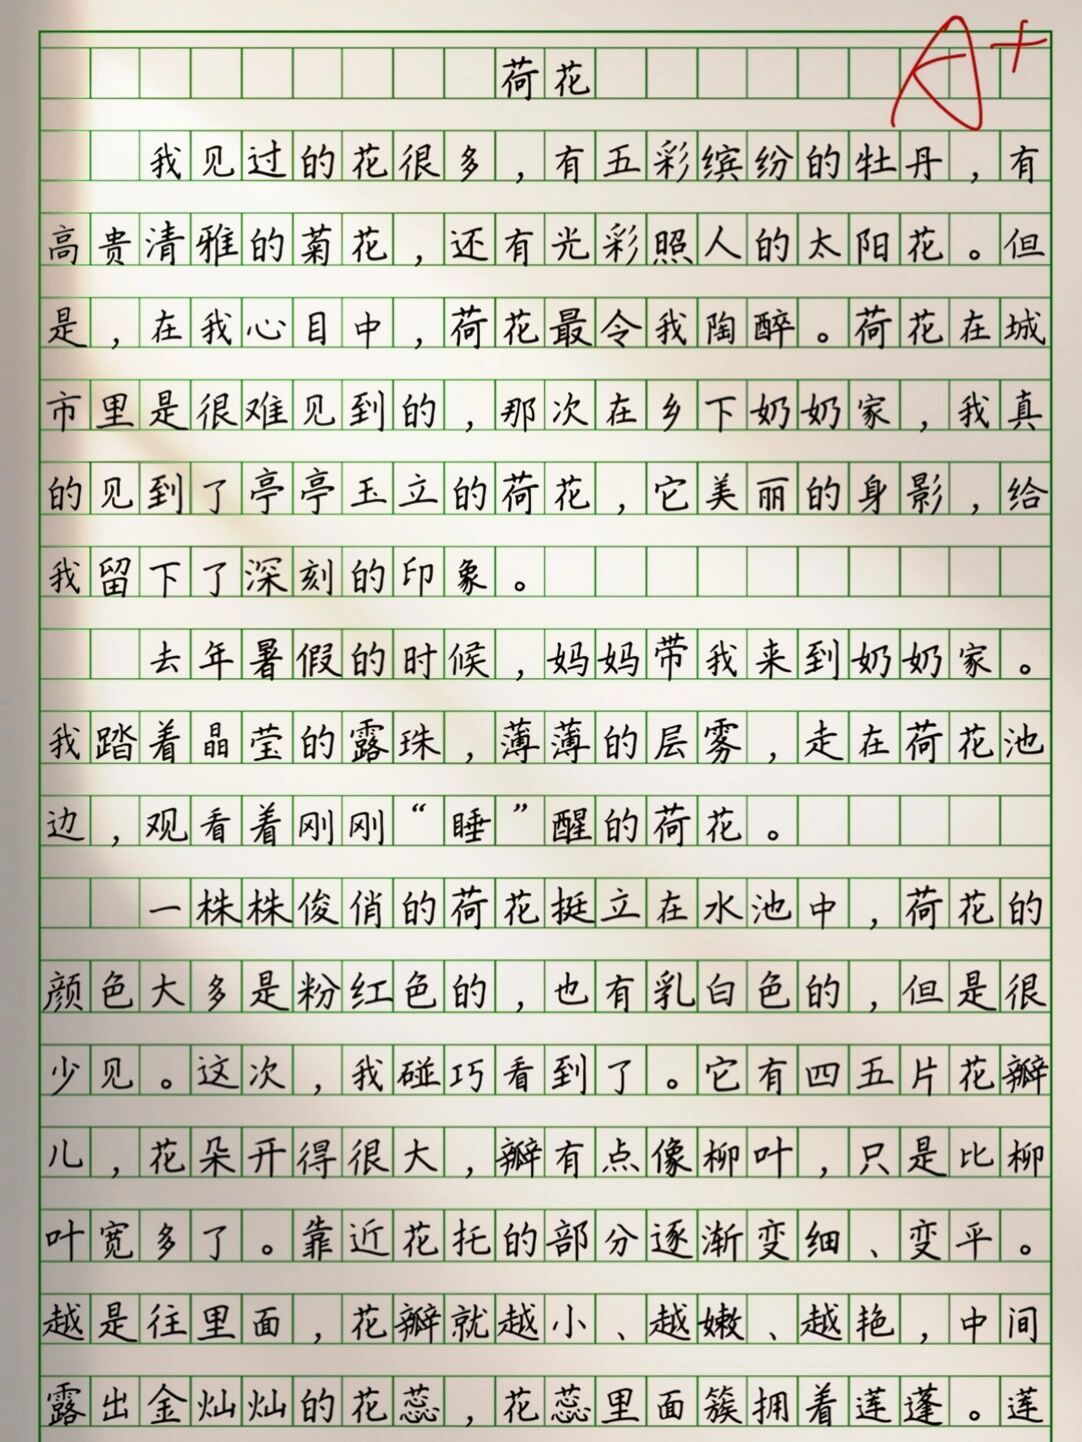 A+
荷花
我见过的花很多，有五彩缤纷的牡丹，有
高贵清雅的菊花，还有光彩照人的太阳花。但
是，在我心目中，荷花最令我陶醉。荷花在城
市里是很难见到的，那次在乡下奶奶家，我真
的见到了亭亭玉立的荷花，它美丽的身影，给
我留下了深刻的印象。
去年暑假的时候，妈妈带我来到奶奶家。
我踏着晶莹的露珠，薄薄的层雾，走在荷花池
边，观看着刚刚“睡”醒的荷花。
一株株俊俏的荷花挺立在水池中，荷花的
颜色大多是粉红色的，也有乳白色的，但是很
少见。这次，我碰巧看到了。它有四五片花瓣
儿，花朵开得很大，瓣有点像柳叶，只是比柳
叶宽多了。靠近花托的部分逐渐变细、变平。
越是往里面，花瓣就越小、越嫩、越艳，中间
露出金灿灿的花蕊，花蕊里面簇拥着莲蓬。莲